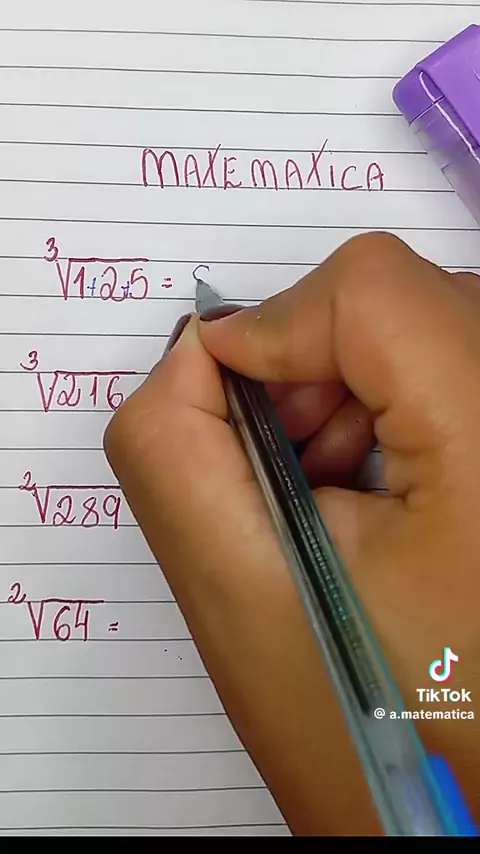 MATEMATICA
³√1+2+5 =
³√216
²√289
²√64 =
TikTok
@ a.matematica